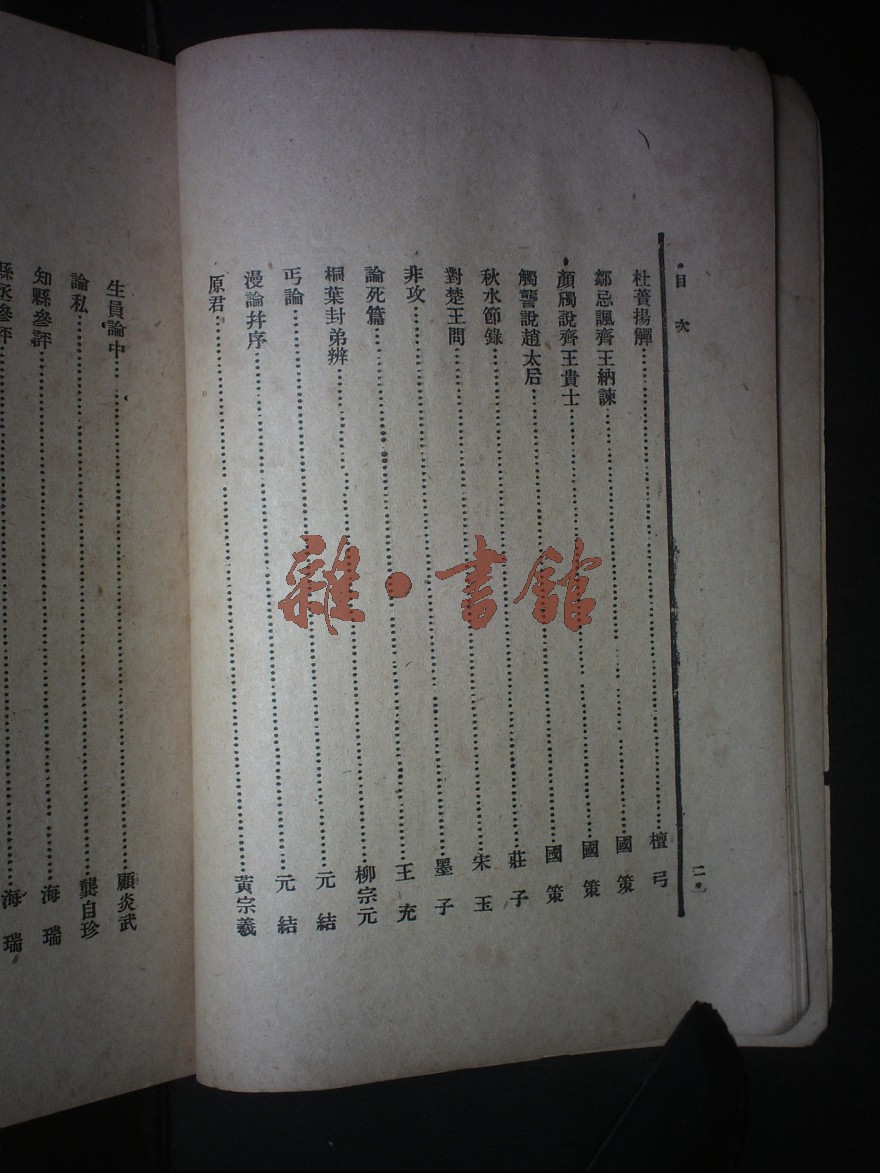 目次
二
杜蕢揚觶……檀弓
鄒忌諷齊王納諫……國策
顏斶說齊王貴士……國策
觸讋說趙太后……國策
秋水節錄……莊子
對楚王問……宋玉
非攻……墨子
論死篇……王充
桐葉封弟辨……柳宗元
丐論……元結
漫論幷序……元結
原君……黃宗羲
生員論中……顧炎武
論私……龔自珍
知縣參評……海瑞
縣丞參評……海瑞
雜·書館